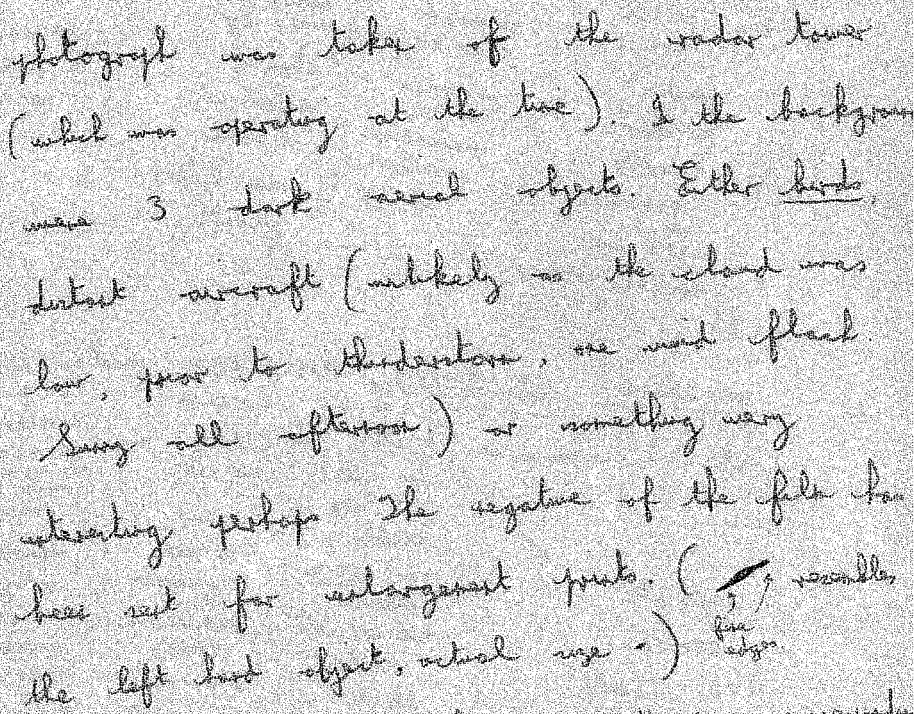 photograph was taken of the radar tower
(which was operating at the time). In the backgroun
were 3 dark aerial objects. Either birds,
distant aircraft (unlikely as the cloud was
low, prior to thunderstorm, one vivid flash
all afternoon) or something very
interesting perhaps The negative of the film has
been sent for enlargement prints. ( resembles
the left hand object, actual size - ) fine
edges.